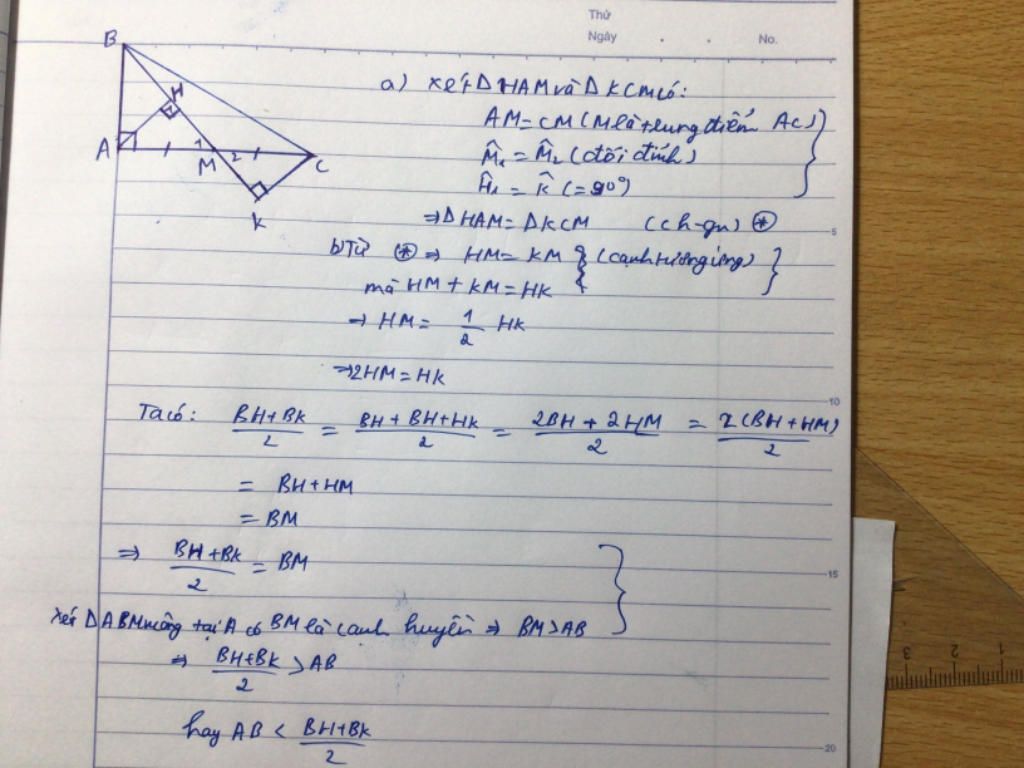 Thứ
Ngày . . No.
B
H
A 1 M 2 C
K
a) Xét ΔHAM và ΔKCM có:
AM = CM (M là trung điểm AC)
M̂₁ = M̂₂ (đối đỉnh)
Ĥ₁ = K̂ (= 90°)
⇒ ΔHAM = ΔKCM (ch-gn) (*)
b) Từ (*) ⇒ HM = KM (cạnh tương ứng)
mà HM + KM = HK
⇒ HM = 1/2 HK
⇒ 2HM = HK
Ta có: (BH+BK)/2 = (BH + BH + HK)/2 = (2BH + 2HM)/2 = 2(BH + HM)/2
= BH + HM
= BM
⇒ (BH + BK)/2 = BM
Xét ΔABM vuông tại A có BM là cạnh huyền ⇒ BM > AB
⇒ (BH+BK)/2 > AB
hay AB < (BH+BK)/2
5
10
15
20
3 2 1